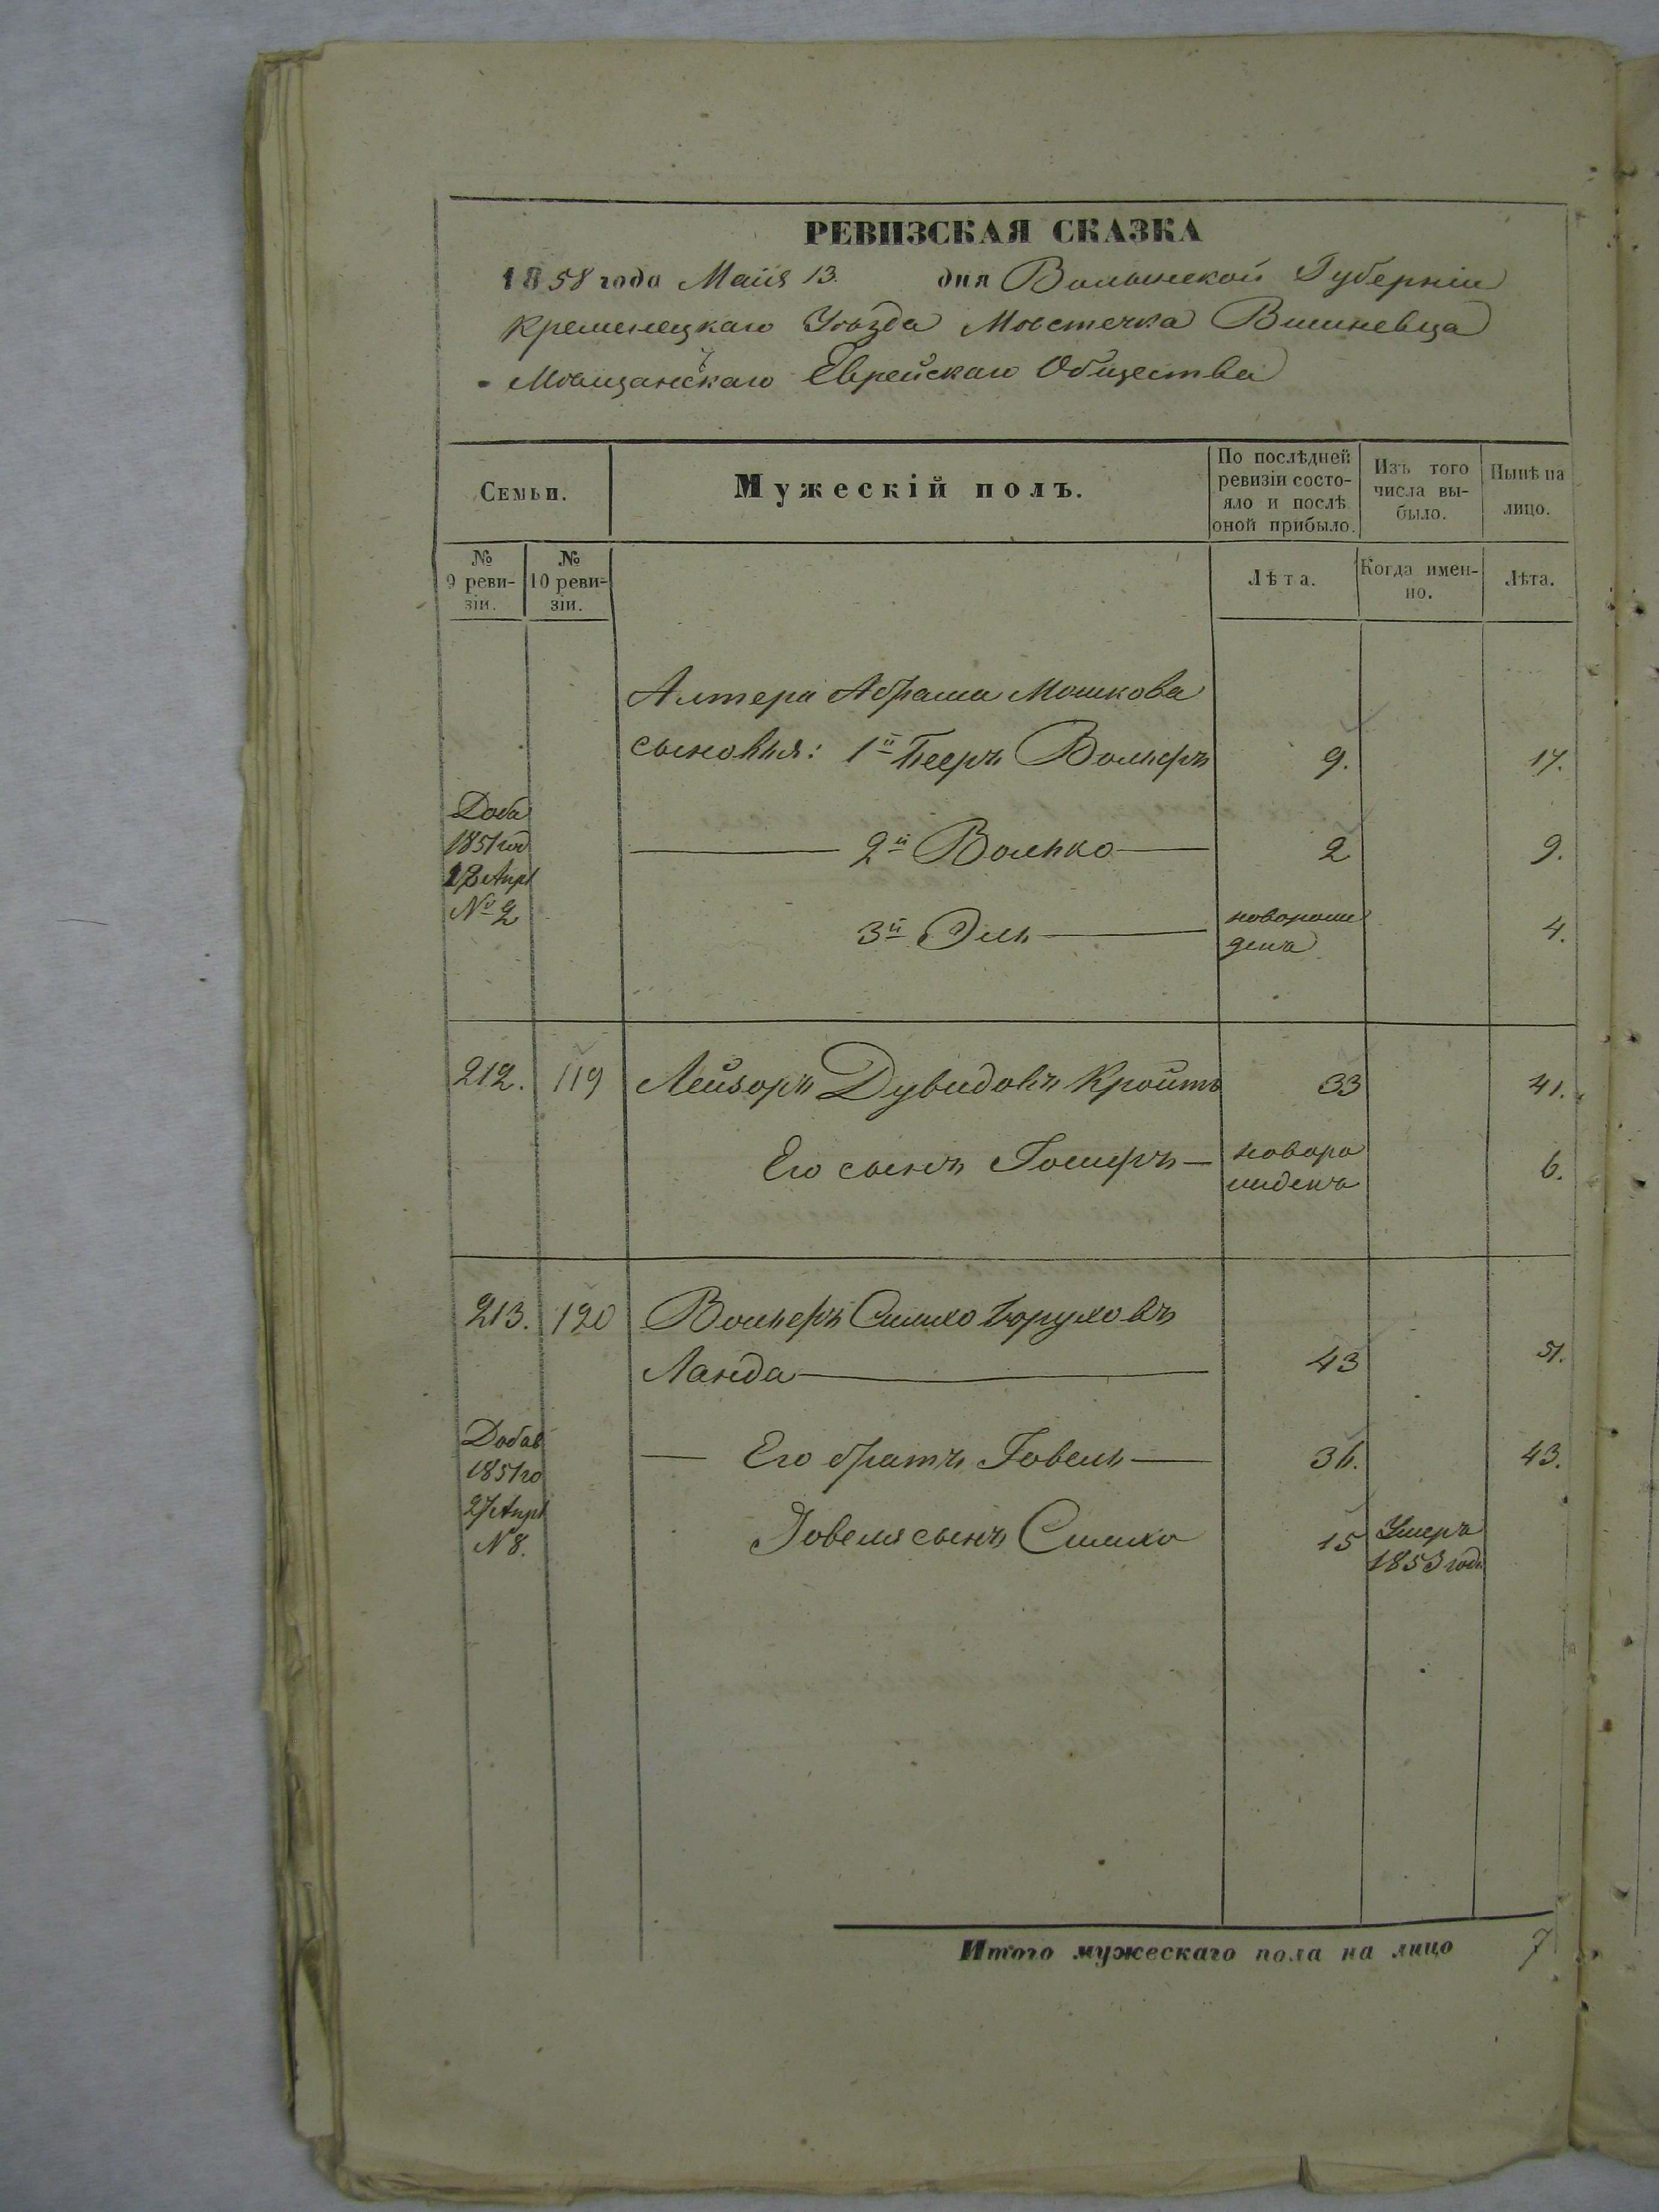 РЕВИЗСКАЯ СКАЗКА
1858 года Маія 13. дня Волынской Губерніи
Кременецкаго Уѣзда Мѣстечка Вишневца
Мѣщанскаго Еврейскаго Общества
Семьи.
Мужескій полъ.
По послѣдней ревизіи состо-
яло и послѣ оной прибыло.
Изъ того числа вы-
было.
Нынѣ на лицо.
№ 9 реви-
зіи.
№ 10 реви-
зіи.
Лѣта.
Когда имен-
но.
Лѣта.
Алтера Абрама Мошкова
сыновья: 1й Бееръ Вольфъ 9. 17.
Доба
1851 год
12 Апрl
№ 2
2й Волько 2 9.
3й Эль новорож
денъ 4.
212. 119 Лейзоръ Дувидовъ Кройтъ 33 41.
Его сынъ Гошеръ новоро
жденъ 6.
213. 120 Вольфъ Симхо Боруховъ
Ланда 43 51.
Добав
1851 го
27 Апрl
N 8.
Его братъ Говель 36. 43.
Говеля сынъ Симхо 15 Умеръ
1853 года
Итого мужескаго пола на лицо 7